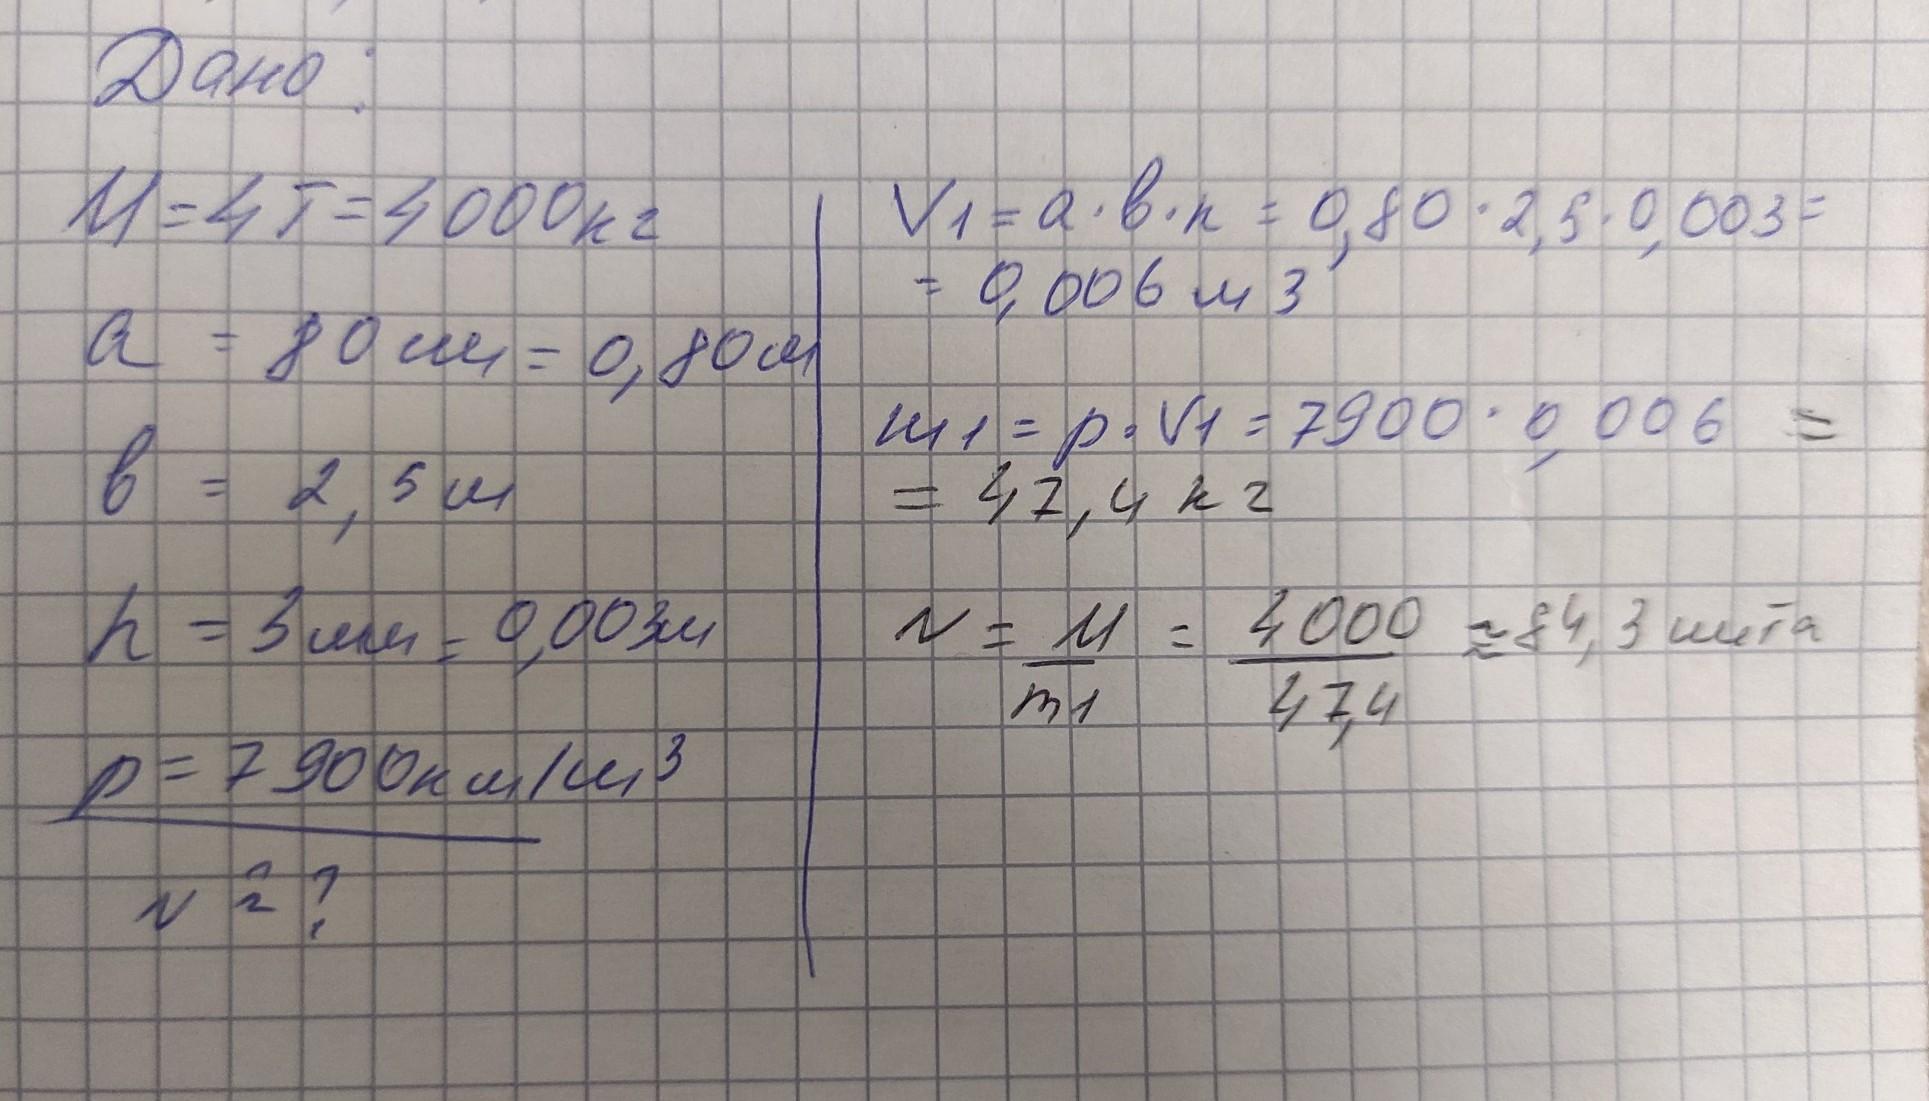 Дано:
M=4T=4000кг
a = 80 см = 0,80м
в = 2,5 м
h = 3 мм = 0,003м
p = 7900км/м³
N = ?
V1 = a · в · h = 0,80 · 2,5 · 0,003 =
= 0,006 м3
m1 = p · V1 = 7900 · 0,006 =
= 47,4 кг
N = M/m1 = 4000/47,4 ≈ 84,3 листа